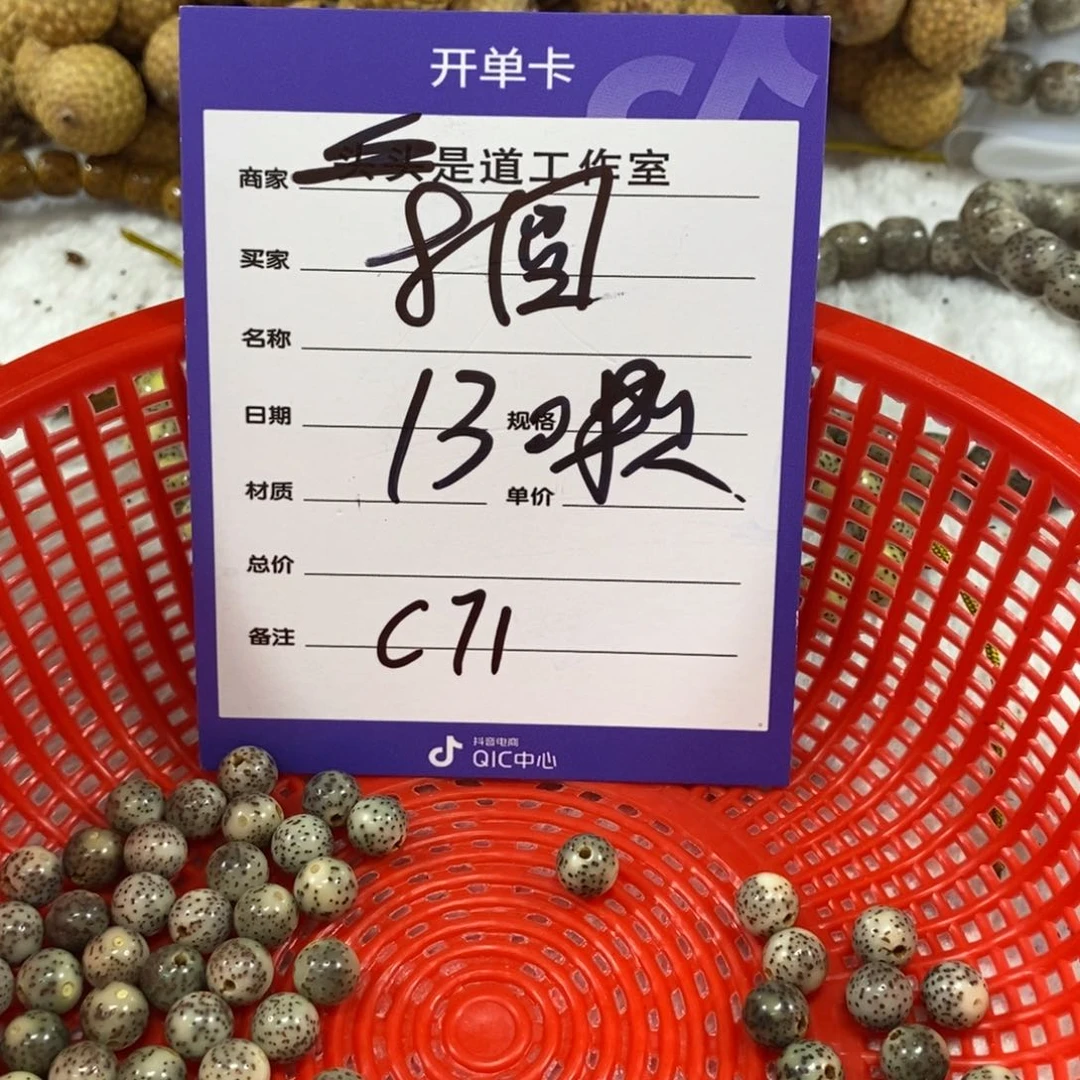 开单卡
商家 头头是道工作室
买家 8圆
名称
日期 规格
130颗
材质 单价
总价
备注 C71
抖音电商
QIC中心